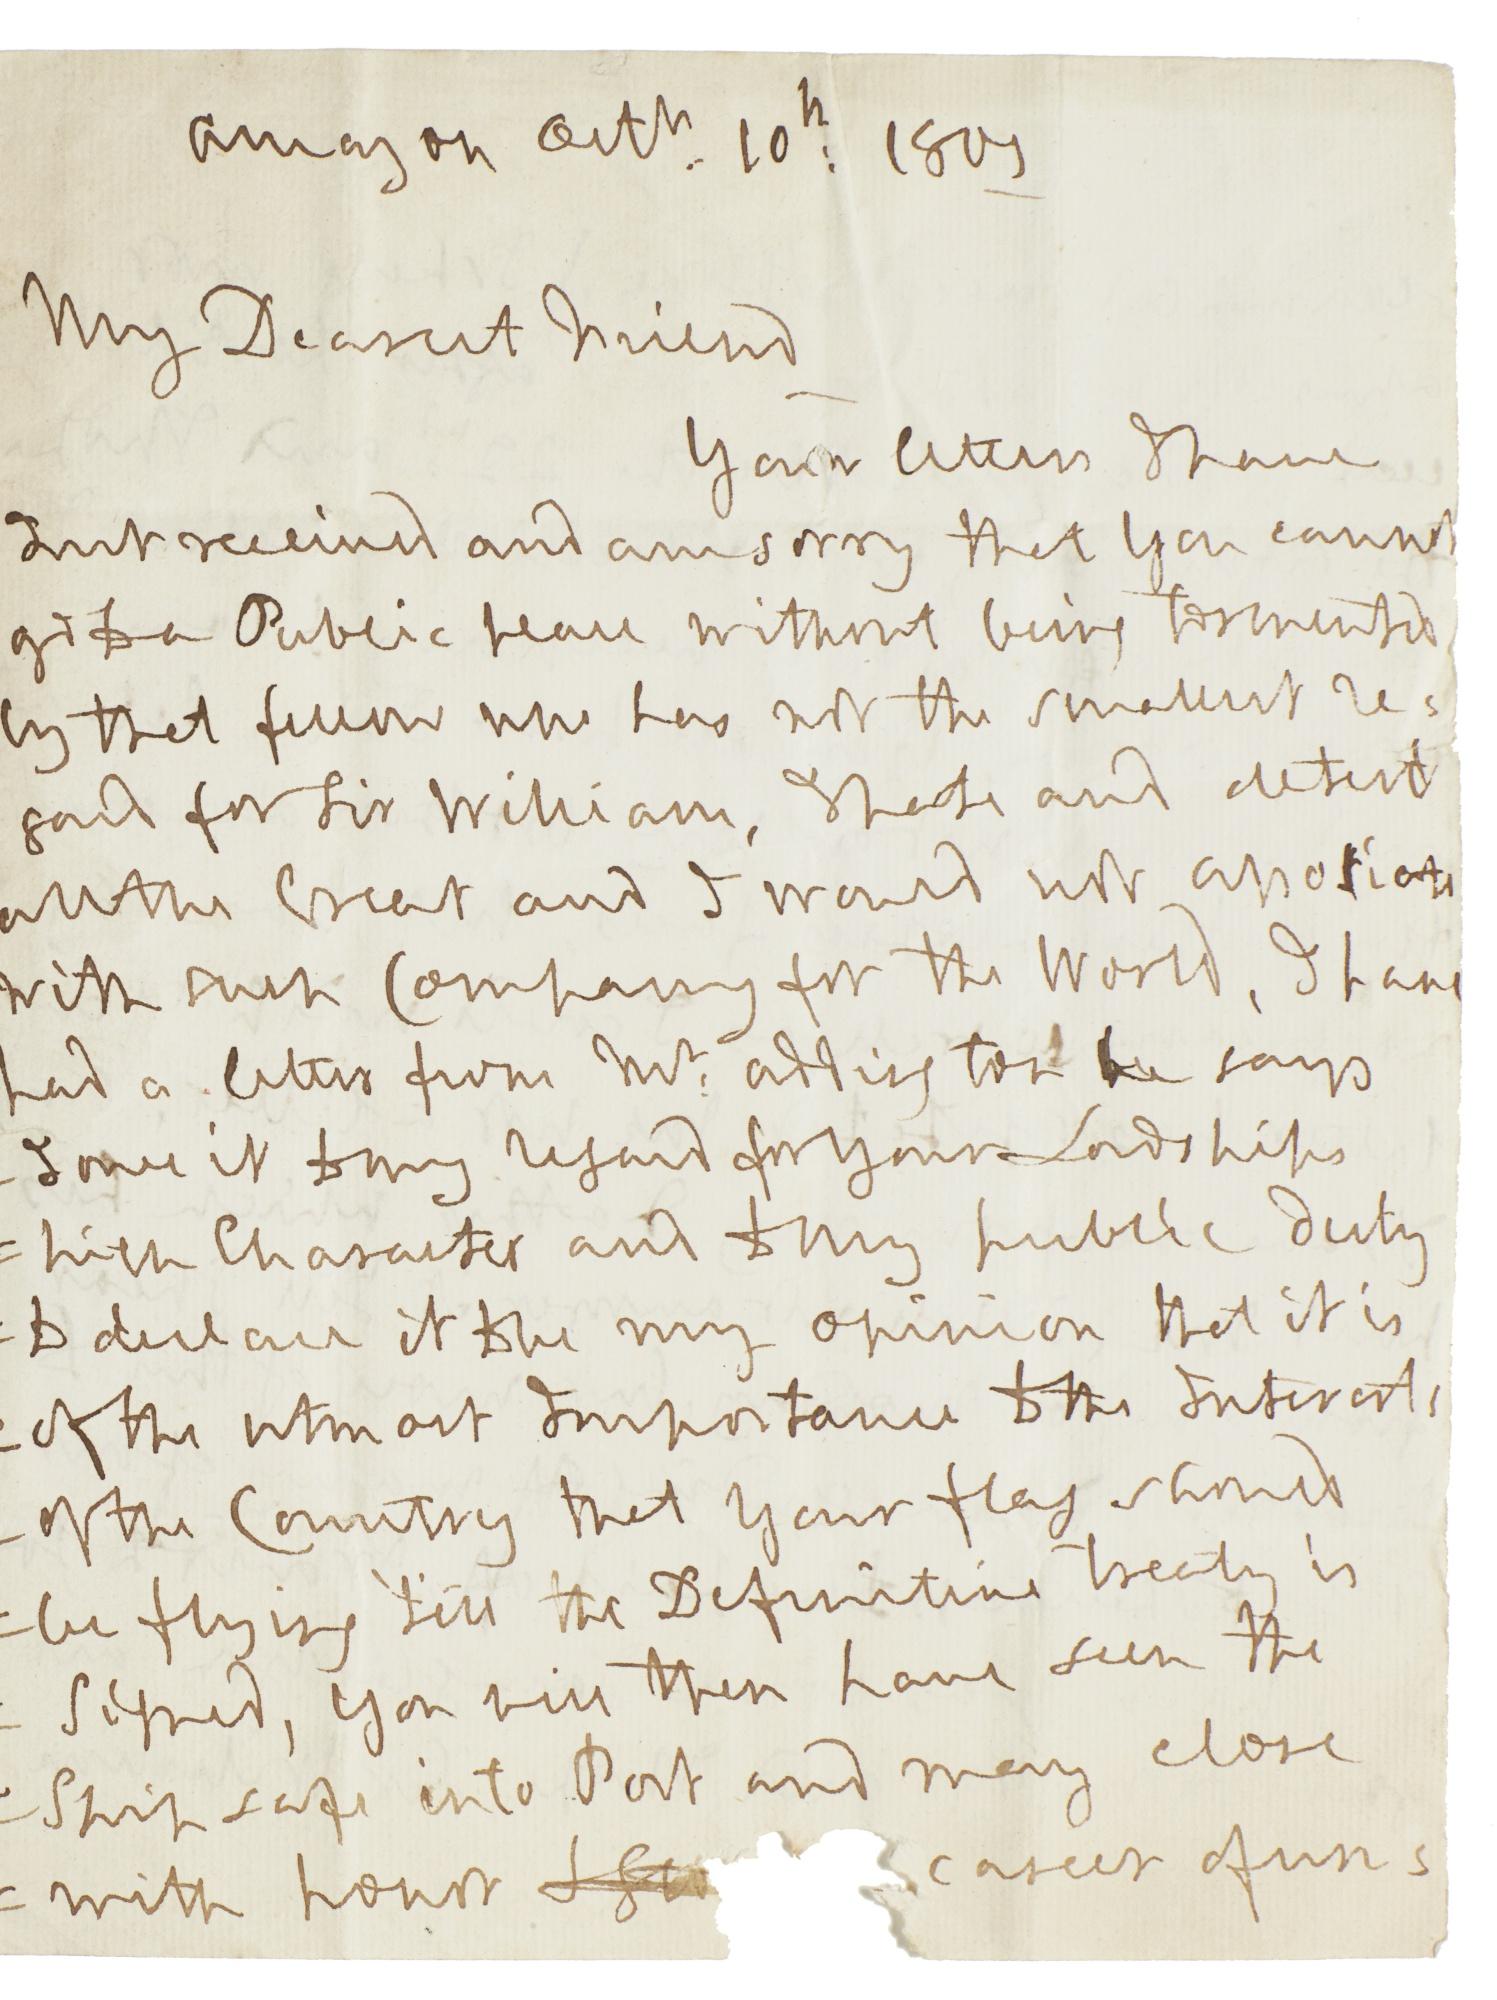 Amazon Octr. 10th: 1801
My Dearest Friend
Your letters I have
Just received and am sorry that You cannot
go to a Public place without being tormented
by that fellow who has not the smallest re=
gard for Sir William, I hate and detest
all the Great and I would not associate
with such Company for the World, I have
had a letter from Mr: Addington he says
= I owe it to my regard for Your Lordships
= high Character and to my public duty
= to declare it to be my opinion that it is
= of the utmost Importance to the Interests
= of the Country that Your flag should
= be flying till the Definitive treaty is
= Signed, You will then have seen the
= Ship safe into Port and may close
= with honor career of uns